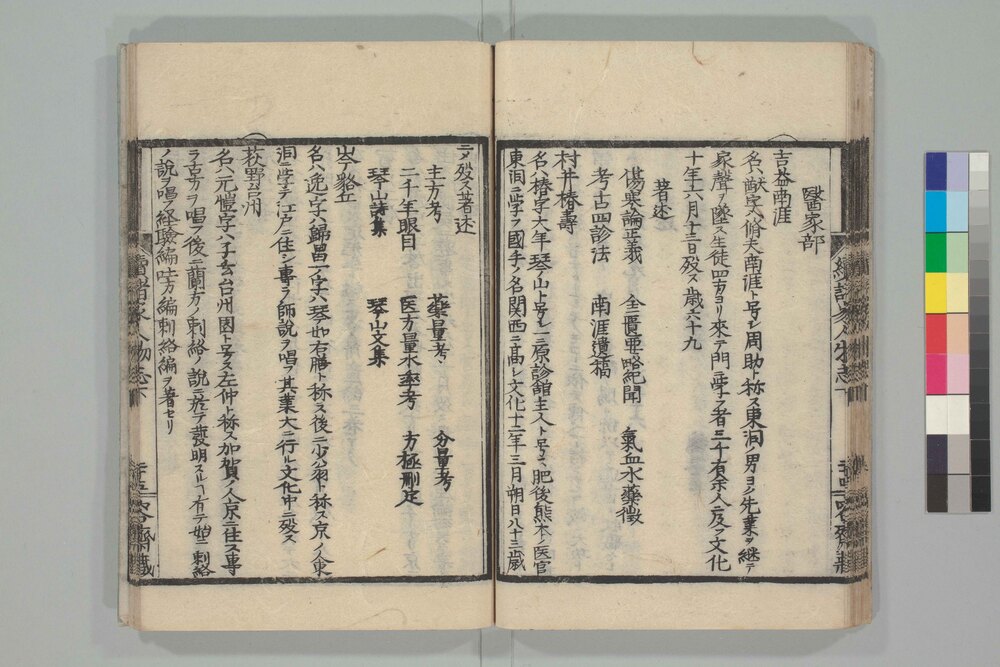 醫家部
吉益南涯
名ハ猷字ハ脩夫南涯ト号シ周助ト称ス東洞ノ男ヨク先業ヲ継テ
家聲ヲ墜ス生徒四方ヨリ來テ門ニ学フ者三千有余人ニ及フ文化
十年六月十三日歿ス歳六十九
著述
傷寒論正義 金匱要略紀聞 氣血水藥徴
考古四診法 南涯遺稿
村井椿壽
名ハ椿字大年琴山ト号シ一ニ原診舘主人ト号ス肥後熊本ノ医官
東洞ニ学フ國手ノ名関西ニ高シ文化十二年三月朔日八十三歳
ニメ歿ス著述
主方考 藥量考 分量考
二千年眼目 医方量水率考 方極刪定
琴山詩集 琴山文集
岑貉丘
名ハ逸字ハ歸昌一ノ字ハ琴也右膳ト称ス後ニ少翁ト称ス京ノ人東
洞ニ学テ江戸ニ住シ専ラ師説ヲ唱フ其業大ニ行ル文化中ニ歿ス
荻野台州
名ハ元愷字ハ子台州因ト号ス左仲ト称ス加賀ノ人京ニ住ス専
ラ古方ヲ唱フ後ニ蘭方ノ刺絡ノ説ニ於テ發明スルヿ有テ始ニ刺絡
ノ説ヲ唱フ経驗編吐方編刺絡編ヲ著セリ
續諸家人物志下